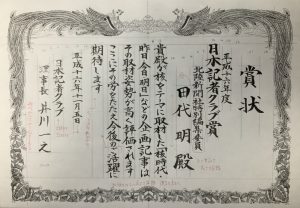 賞状
平成十六年度
日本記者クラブ賞
北陸新聞社特別編集委員
田代明殿
貴殿が核をテーマに取材した「核時代
昨日今日明日」などの企画記事は
その取材姿勢が高く評価されます
ここにその労をたたえ今後の活躍に
期待します
平成十六年十一月五日
日本記者クラブ
理事長 井川一之